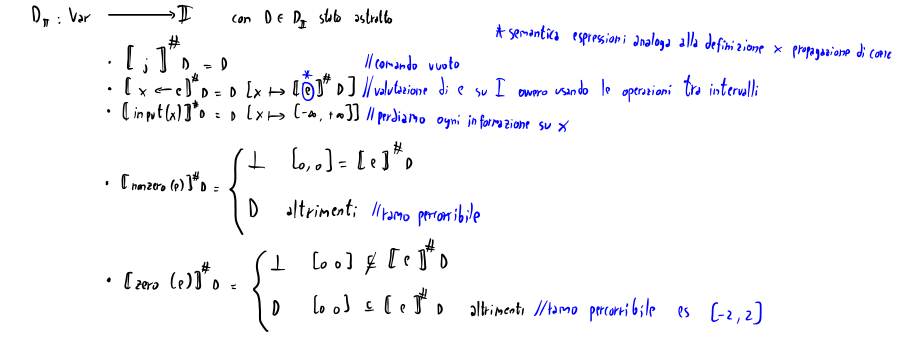 D_𝕀 : Var ⟶ 𝕀 con D ∈ D_𝕀 stato astratto
* semantica espressioni analoga alla definizione x propagazione di cost
• ⟦ ; ⟧^# D = D //comando vuoto
• ⟦ x ← e ⟧^# D = D [x ↦ ⟦e⟧^# D] * //valutazione di e su I ovvero usando le operazioni tra intervalli
• ⟦ input(x) ⟧^# D = D [x ↦ [-∞, +∞]] //perdiamo ogni informazione su x
• ⟦ nonzero (e) ⟧^# D = { ⊥ [0,0] = ⟦ e ⟧^# D
D altrimenti //ramo percorribile
• ⟦ zero (e) ⟧^# D = { ⊥ [0 0] ⊈ ⟦ e ⟧^# D
D [0 0] ⊆ ⟦ e ⟧^# D altrimenti //ramo percorribile es [-2, 2]